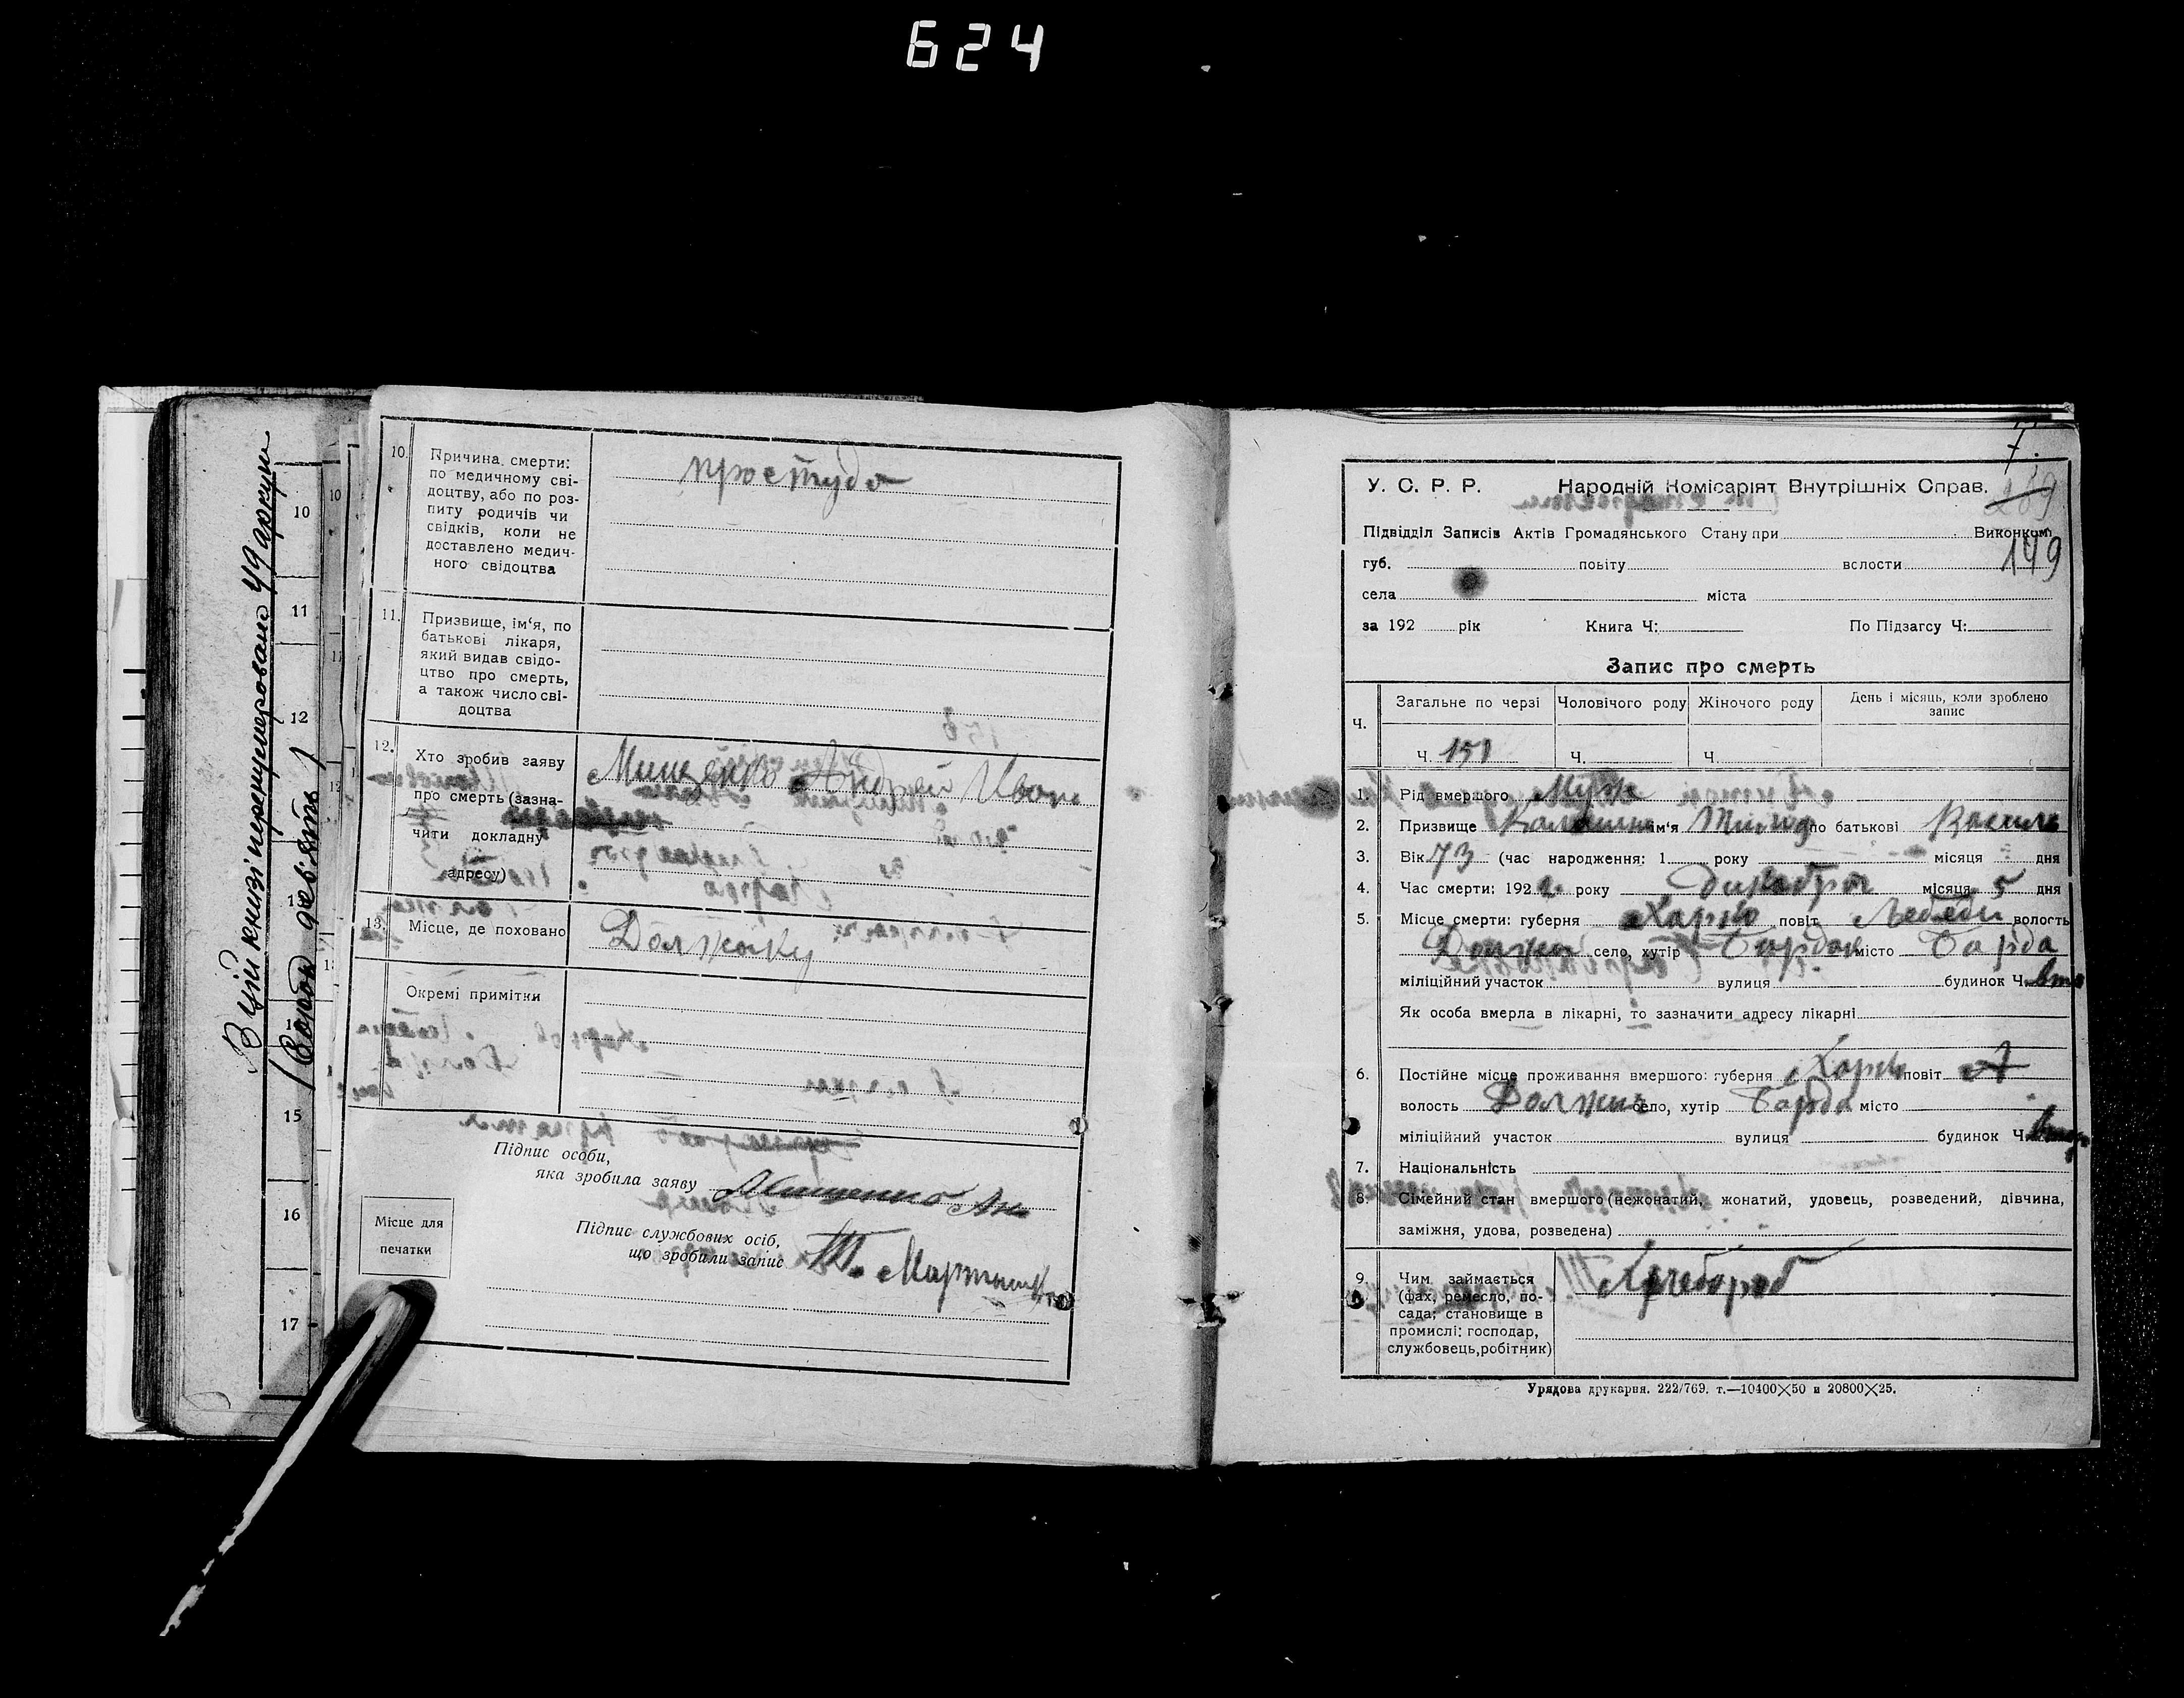 624
В цій книзі перенумеровано 49 аркуш
(Сорок дев'ять)
10
11
12
13
15
16
17
10. Причина смерти:
по медичному сві-
доцтву, або по роз-
питу родичів чи
свідків, коли не
доставлено медич-
ного свідоцтва
простуда
11. Призвище, ім'я, по
батькові лікаря,
який видав свідо-
цтво про смерть,
а також число сві-
доцтва
12. Хто зробив заяву
про смерть (зазна-
чити докладну
адресу)
Мищенко Андрей Иван
13. Місце, де поховано
Должику
Окремі примітки
Підпис особи,
яка зробила заяву Мищенко Ан
Місце для
печатки
Підпис службових осіб,
що зробили запис
7.
У. С. Р. Р. Народній Комісаріят Внутрішніх Справ.
Підвідділ Записів Актів Громадянського Стану при Виконком
149
губ. повіту волости
села міста
за 192 рік Книга Ч: По Підзагсу Ч:
Запис про смерть
Ч. Загальне по черзі Чоловічого роду Жіночого роду День і місяць, коли зроблено
запис
Ч. 151 Ч. Ч.
1. Рід вмершого Муж
2. Призвище ім'я по батькові
3. Вік 73 (час народження: 1 року місяця дня
4. Час смерти: 1922 року декабря місяця 5 дня
5. Місце смерти: губерня Харьк повіт Лебеди волость
Должик село, хутір місто
міліційний участок вулиця будинок Ч.
Як особа вмерла в лікарні, то зазначити адресу лікарні
6. Постійне місце проживання вмершого: губерня Харьк повіт
волость Должик село, хутір місто
міліційний участок вулиця будинок Ч.
7. Національність
8. Сімейний стан вмершого (нежонатий, жонатий, удовець, розведений, дівчина,
заміжня, удова, розведена)
9. Чим займається
(фах, ремесло, по-
сада; становище в
промислі: господар,
службовець, робітник)
Хлебороб
Урядова друкарня. 222/769. т.—10400×50 и 20800×25.